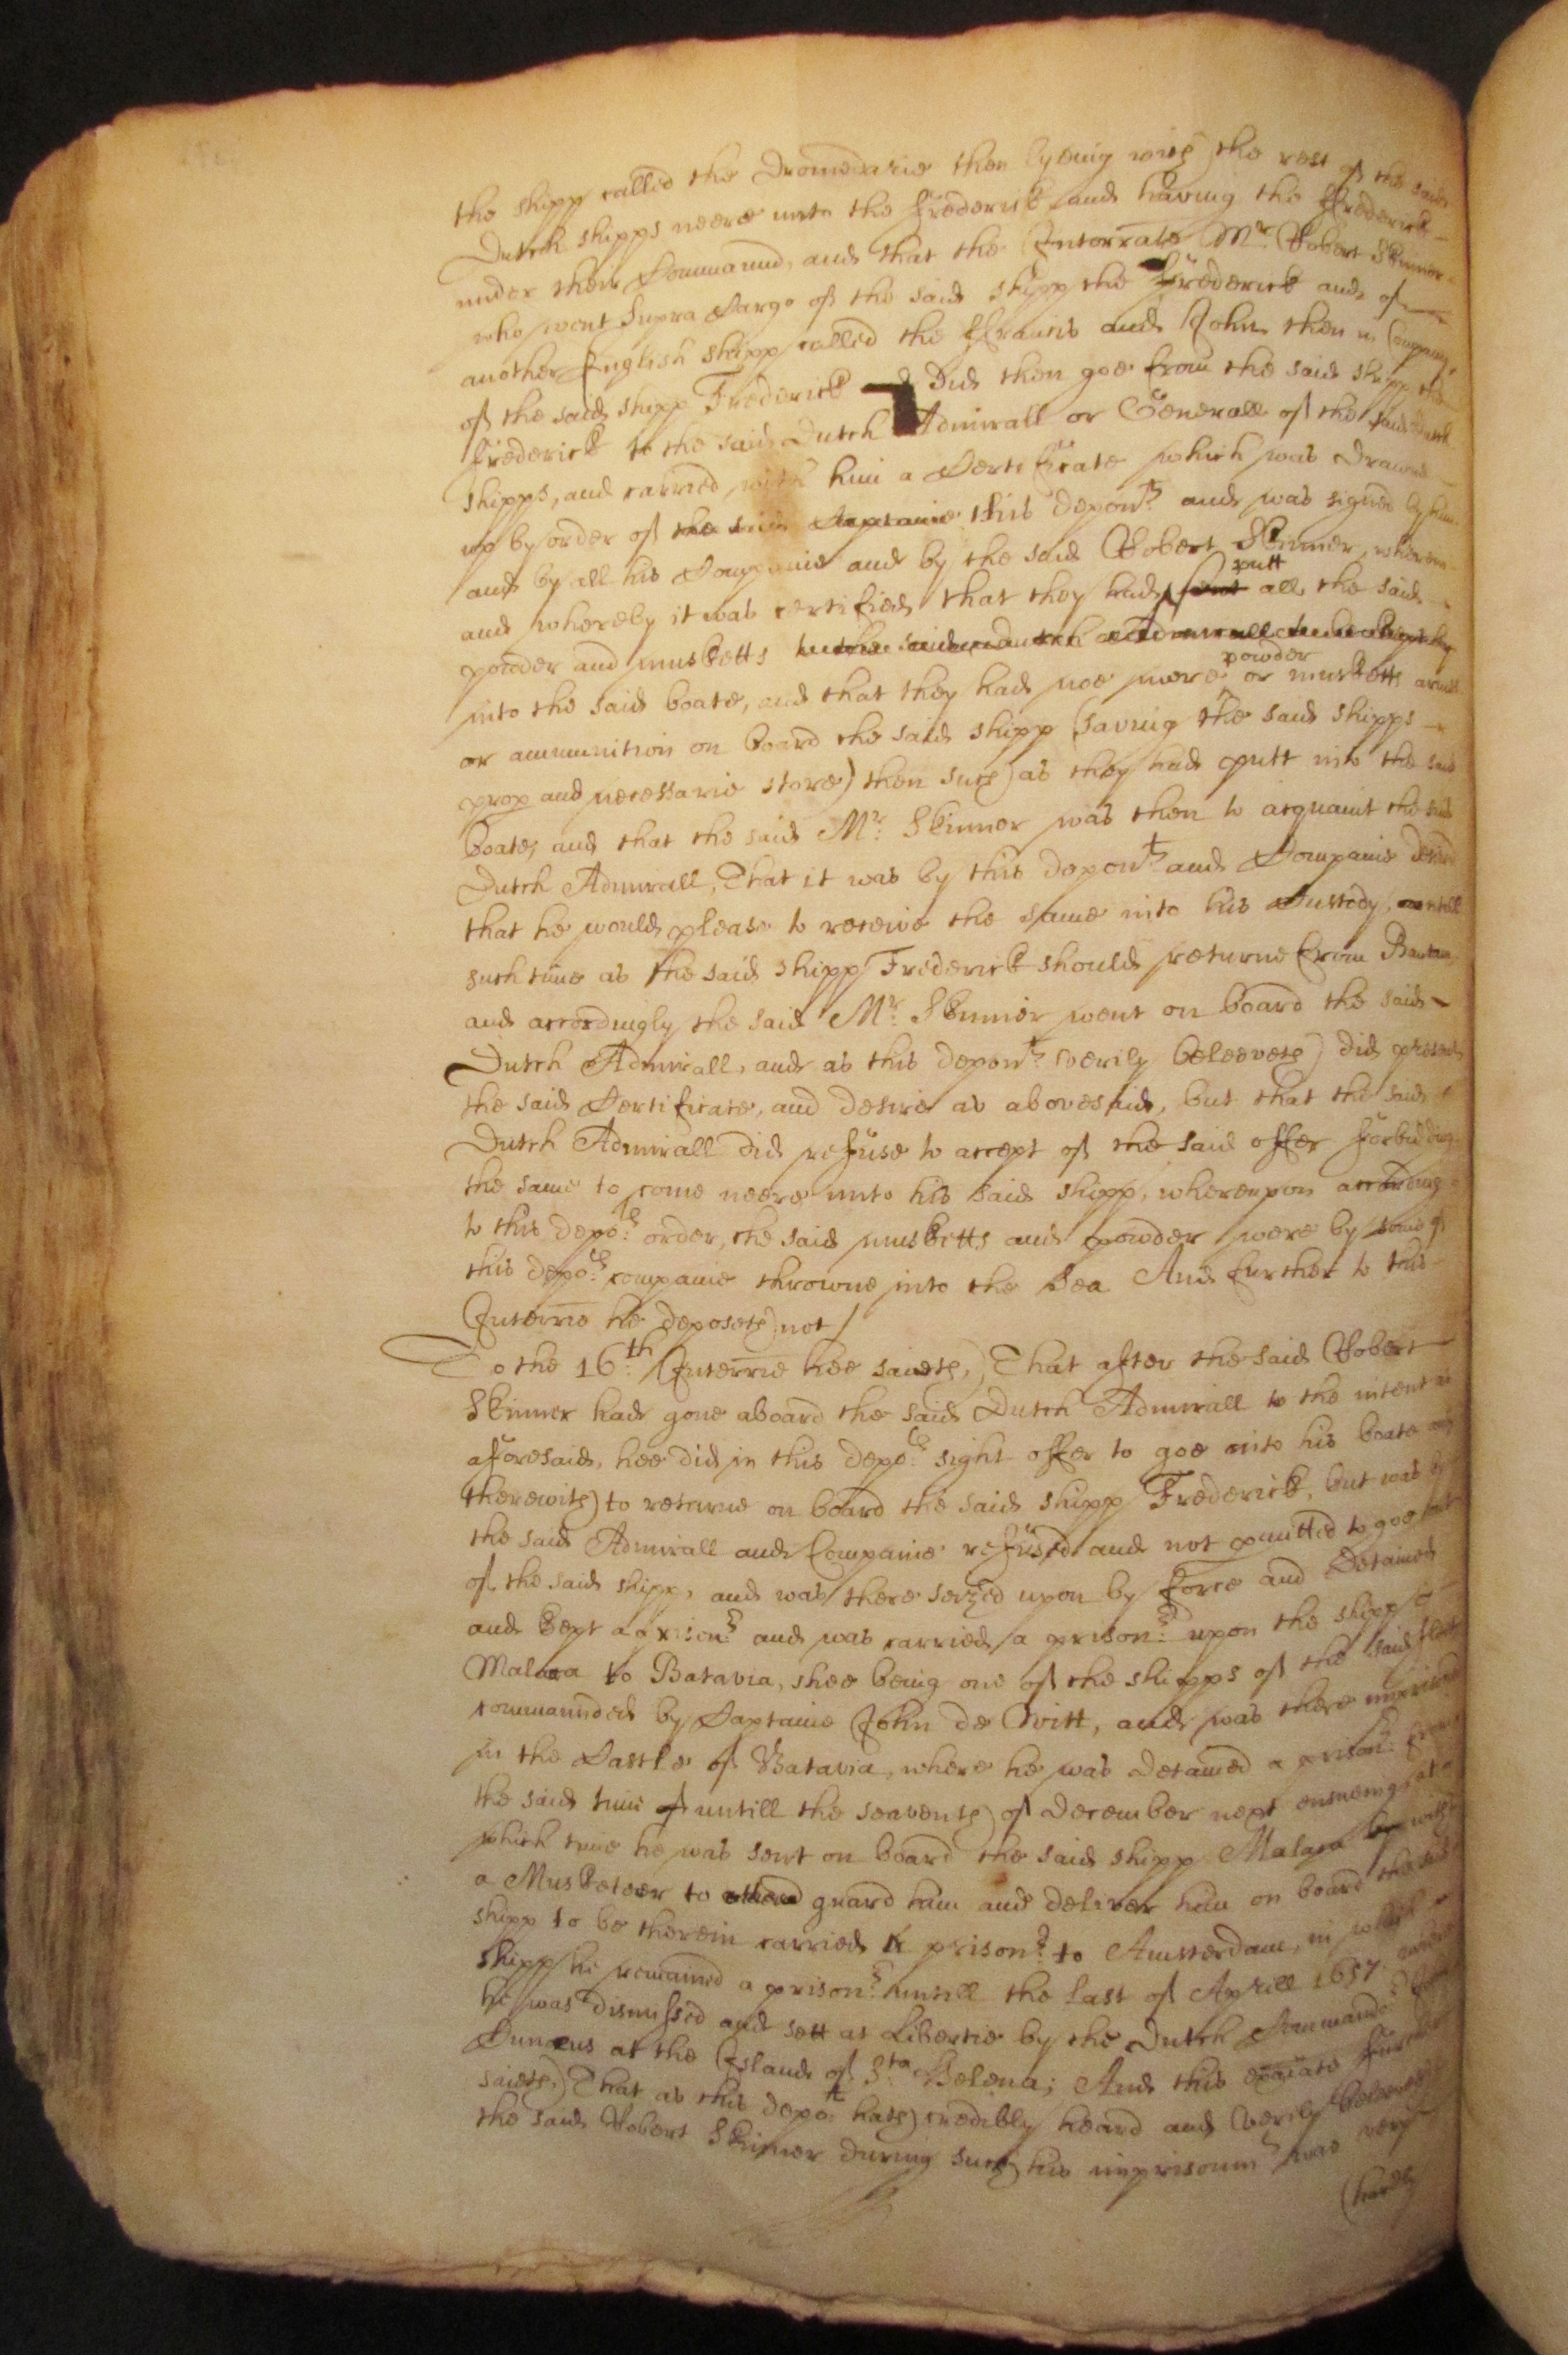 the shipp called the Dromedarie then lyeing with the rest of the said
Dutch shipps neere unto the Frederick and having the Frederick
under their Commaund, and that the Interrate Mr. Robert Skinner
who went Supra Cargo of the said shipp the Frederick and of
another English shipp called the Francis and John then in Company
of the said shipp Frederick Did then goe from the said shipp the
Frederick to the said Dutch Admirall or Generall of the said Dutch
shipps, and carried with him a Certificate which was drawne
up by order of the said Captaine this depont and was signed by him
and by all his Companie and by the said Robert Skinner, wherein
and whereby it was certified that they had sent putt all the said
powder and musketts to the said Dutch Admirall
into the said boate, and that they had noe more powder or musketts armes
or ammunition on board the said shipp (saving the said shipps
prop and necessarie store) then such as they had putt into the said
boate, and that the said Mr. Skinner was then to acquaint the said
Dutch Admirall, That it was by this depont and Companie desired
that he would please to receive the same into his Custody, untill
such time as the said shipp Frederick should returne from Bantam
and accordingly the said Mr. Skinner went on board the said
Dutch Admirall, and as this depont verily beleeveth did present
the said Certificate, and desire as abovesaid, but that the said
Dutch Admirall did refuse to accept of the said offer forbidding
the same to come neere unto his said shipp, whereupon according
to this depots order, the said musketts and powder were by some of
this depots companie throwne into the Sea And further to this
Interrie he deposeth not /
To the 16th Interrie hee saieth, That after the said Robert
Skinner had gone aboard the said Dutch Admirall to the intent as
aforesaid, hee did in this depots sight offer to goe into his boate and
therewith to returne on board the said shipp Frederick, but was by
the said Admirall and Companie refused and not pmitted to goe out
of the said shipp, and was there seized upon by force and detained
and kept a prisonr and was carried a prisonr upon the shipp
Malaca to Batavia, shee being one of the shipps of the said fleet
commaunded by Captaine John de Witt, and was there imprisoned
in the Castle of Batavia, where he was detained a prisonr from
the said time of untill the seaventh of December next ensueing at
which time he was sent on board the said shipp Malaca by with
a Musketeer to guard him and deliver him on board the said
shipp to be therein carried prisonr to Amsterdam, in which
shipp he remained a prisonr untill the last of Aprill 1657 when
he was dismissed and sett at Libertie by the Dutch Commander
Cuneus at the Island of Sta Helena; And this exaiate further
saieth, That as this depot hath credibly heard and verily beleeveth
the said Robert Skinner during such his imprisonmt was very
(hardly